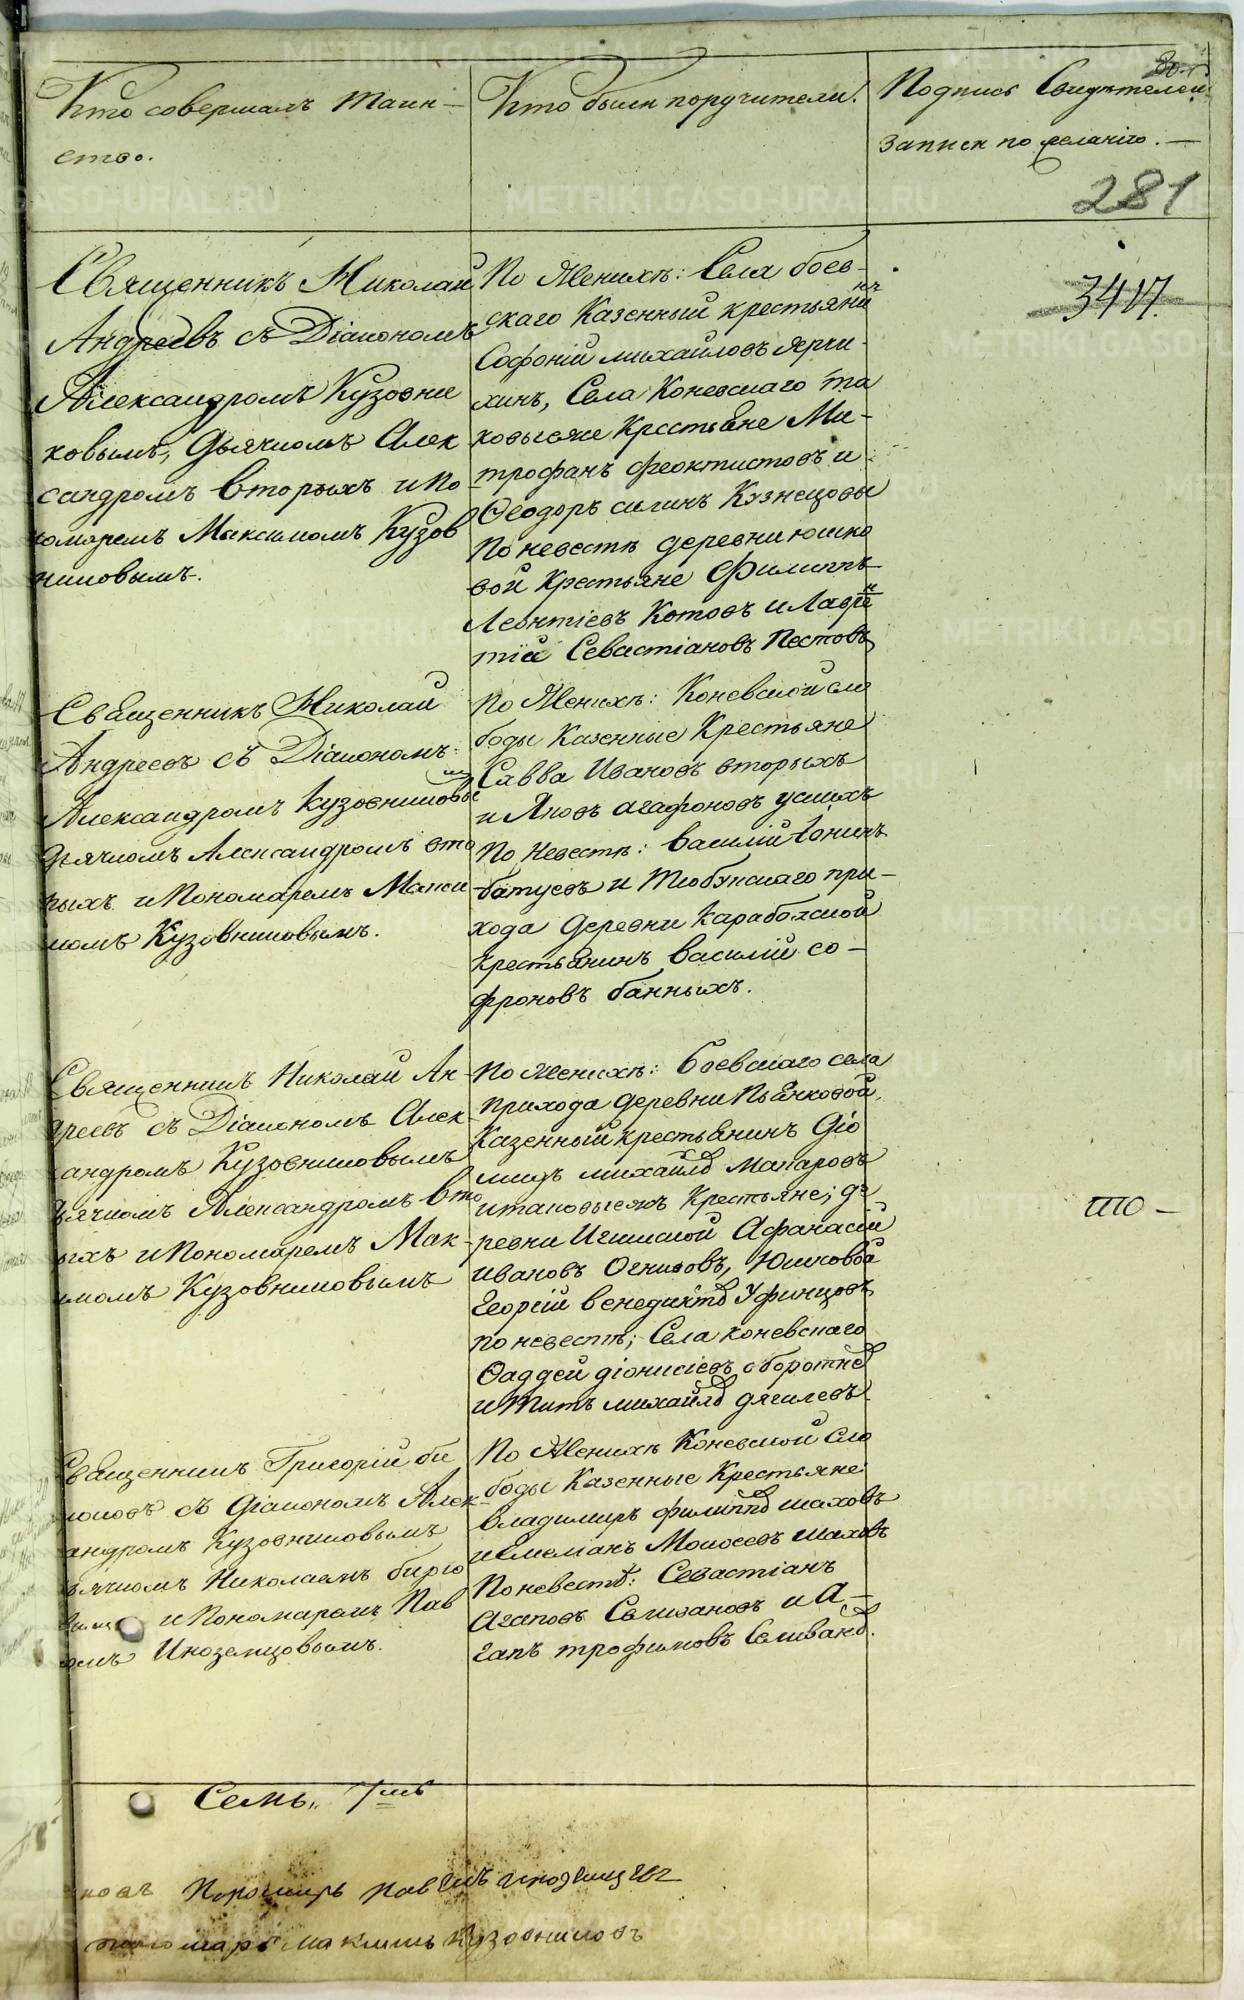 Кто совершалъ таин-
ство.
Кто были поручители.
Подпись Свидѣтелей
записи по желанію. —
281
3417.
Священникъ Николай
Андреевъ съ Діакономъ
Александромъ Кузовни
ковымъ, Дьячкомъ Алек
сандромъ Вторыхъ и По
номаремъ Максимомъ Кузов
никовымъ.
По Женихѣ: Села боев-
скаго Казенный крестьянинъ
Софоній михайловъ ярчи-
хинъ, Села Коневскаго та
ковыеже Крестьяне Ми-
трофанъ феоктистовъ и
Ѳеодоръ силинъ Кузнецовы
По невестѣ деревни юшко
вой Крестьяне Филиппъ
Леонтіевъ Котовъ и Лаврен
тій Севастіановъ Пестовъ
Священникъ Николай
Андреевъ съ Діакономъ
Александромъ Кузовниковымъ
Дьячкомъ Александромъ вто
рыхъ и Пономаремъ Макси
момъ Кузовниковымъ.
По Женихѣ: Коневской сло
боды Казенные Крестьяне
Савва Ивановъ вторыхъ
и Яковъ агафоновъ
По Невестѣ: Василій
и Тюбукскаго при-
хода Деревни Караболской
крестьянинъ Василій со-
фроновъ банныхъ.
Священникъ Николай Ан-
дреевъ съ Діакономъ Алек-
сандромъ Кузовниковымъ
Дьячкомъ Александромъ Вто
рыхъ и Пономаремъ Мак-
симомъ Кузовниковымъ
По Женихѣ: Боевскаго села
прихода деревни Пьянковой
Казенный крестьянинъ Діо
мидъ михайловъ Макаровъ
и таковыежъ Крестьяне; де
ревни Игишской Афанасій
Ивановъ Огнивовъ, Юшковой
Георгій венедиктовъ Уфинцовъ
по невестѣ; Села коневскаго
Ѳаддей діонисіевъ оборотневъ
и Титъ михайловъ дягилевъ.
тто —
Священникъ Григорій би
рюковъ съ діакономъ Алек-
сандромъ Кузовниковымъ
Дьячкомъ Николаемъ бирю
ковымъ и Пономаремъ Пав
ломъ Иноземцовымъ.
По Женихѣ Коневской сло
боды Казенные Крестьяне
Владимиръ филипповъ шаховъ
и емелианъ Моисеевъ шаховъ
По невестѣ: Севастіанъ
Агаповъ Селивановъ и А-
гапъ трофимовъ Селивановъ.
Семь „ 7мь
новъ Пономарь Павелъ иноземцев
пономарь максимъ Кузовниковъ